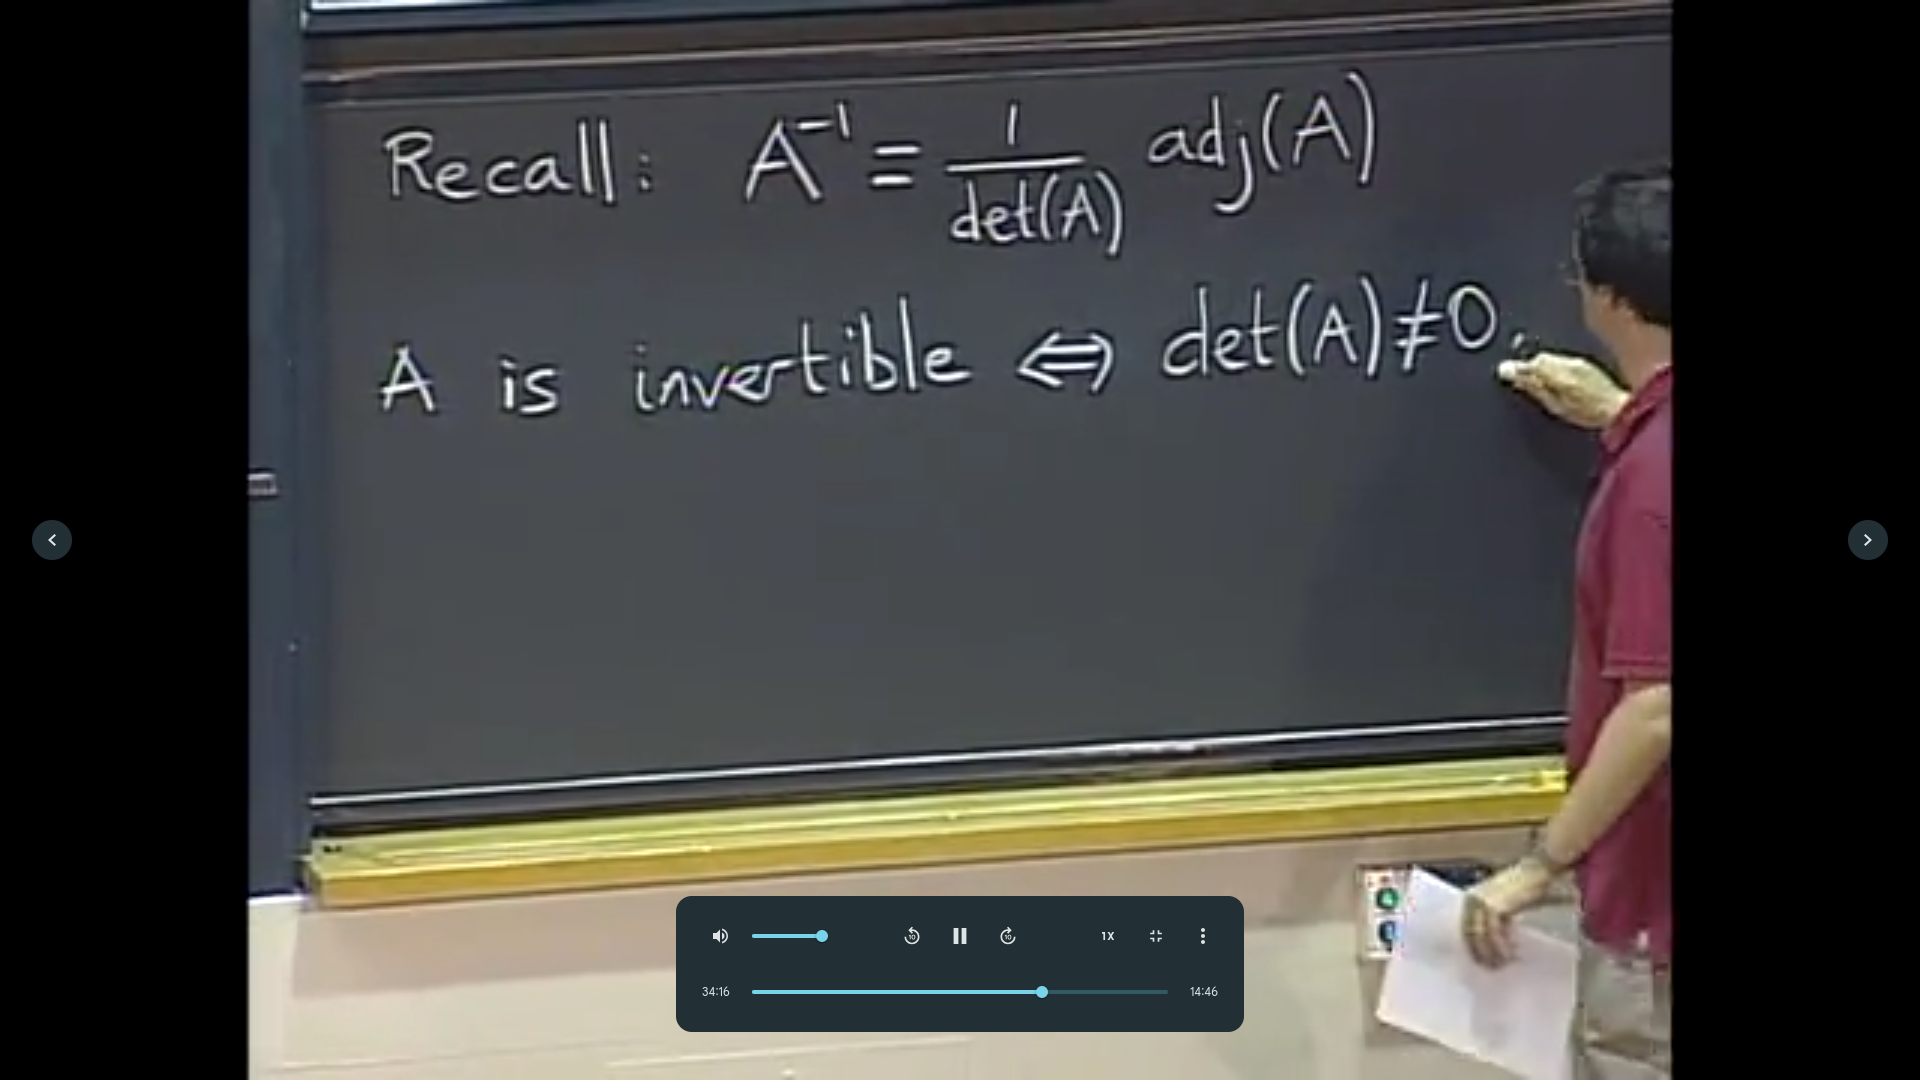 Recall: A⁻¹ = 1/det(A) adj(A)
A is invertible ⇔ det(A) ≠ 0.
10
10
1X
34:16
14:46